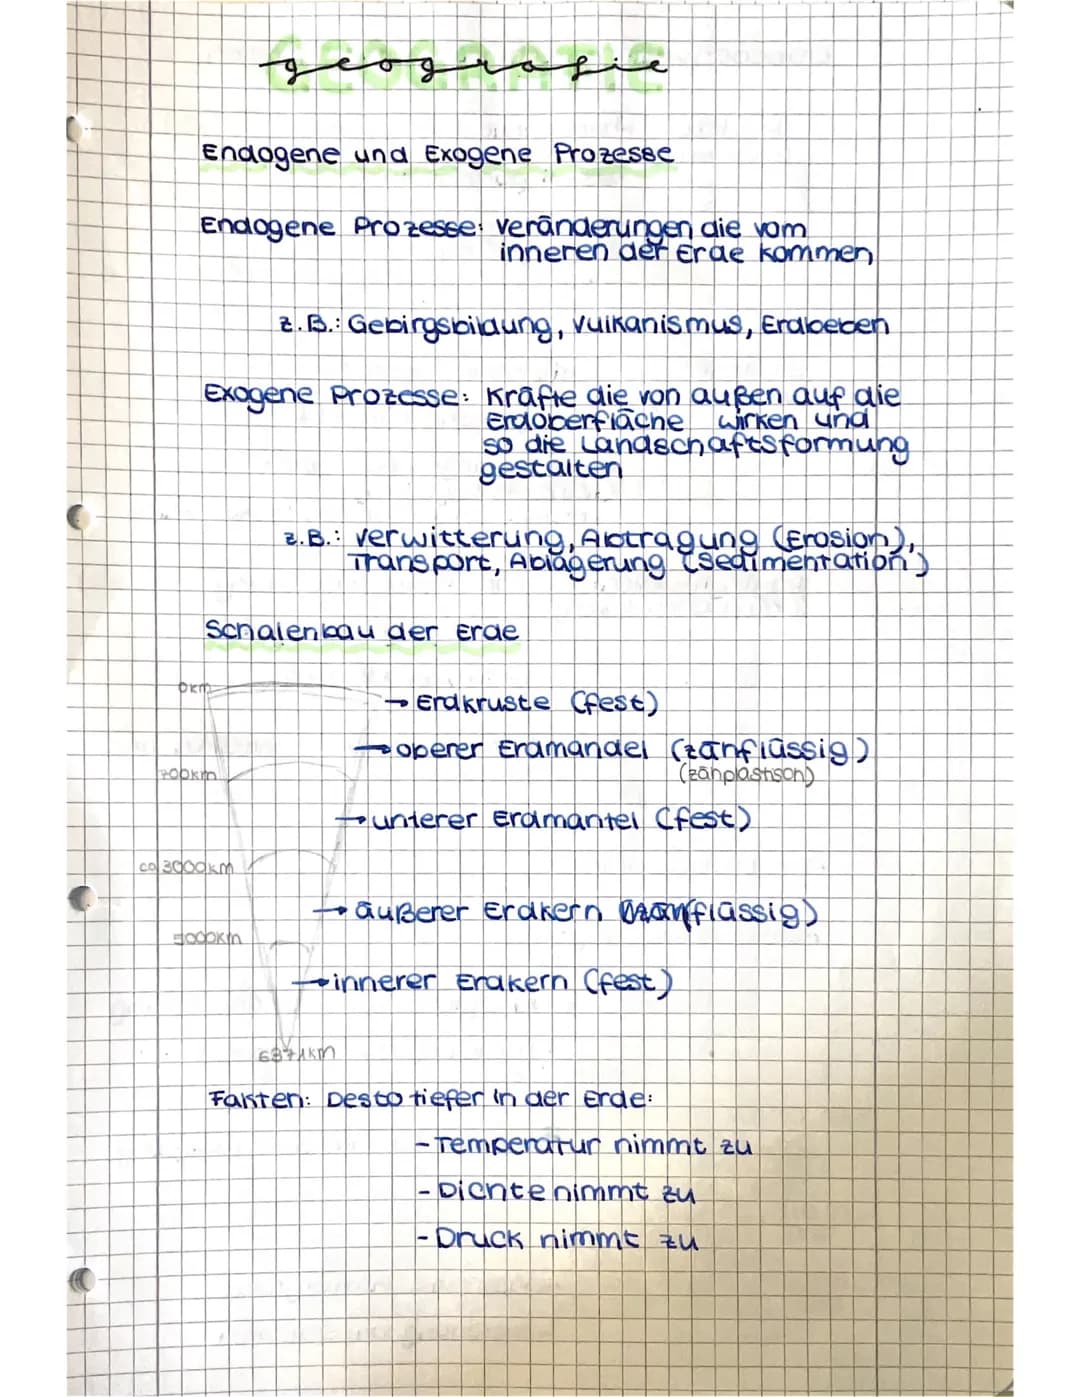 GEOGRAFIE
geografie
Endogene und Exogene Prozesse
Endogene Prozesse: Veränderungen die vom
inneren der Erde kommen
z.B.: Gebirgsbildung, Vulkanismus, Erdbeben
Exogene Prozesse: Kräfte die von außen auf die
Erdoberfläche wirken und
so die Landschaftsformung
gestalten
z.B.: Verwitterung, Abtragung (Erosion),
Transport, Ablagerung (Sedimentation)
Schalenbau der Erde
0km
→ Erdkruste (fest)
→ oberer Erdmandel (zähflüssig)
700km
(zähplastisch)
→ unterer Erdmantel (fest)
ca 3000km
→ äußerer Erdkern (flüssig)
5000km
→ innerer Erdkern (fest)
6371km
Fakten: Desto tiefer in der Erde:
- Temperatur nimmt zu
- Dichte nimmt zu
- Druck nimmt zu